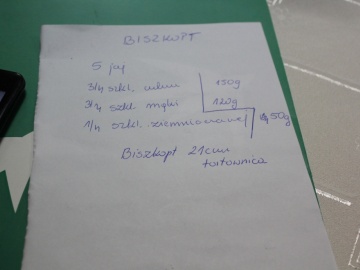 BISZKOPT
5 jaj
3/4 szkl. cukru 150g
3/4 szkl. mąki 120g
1/4 szkl. ziemniaczanej 50g
Biszkopt 21cm
tortownica